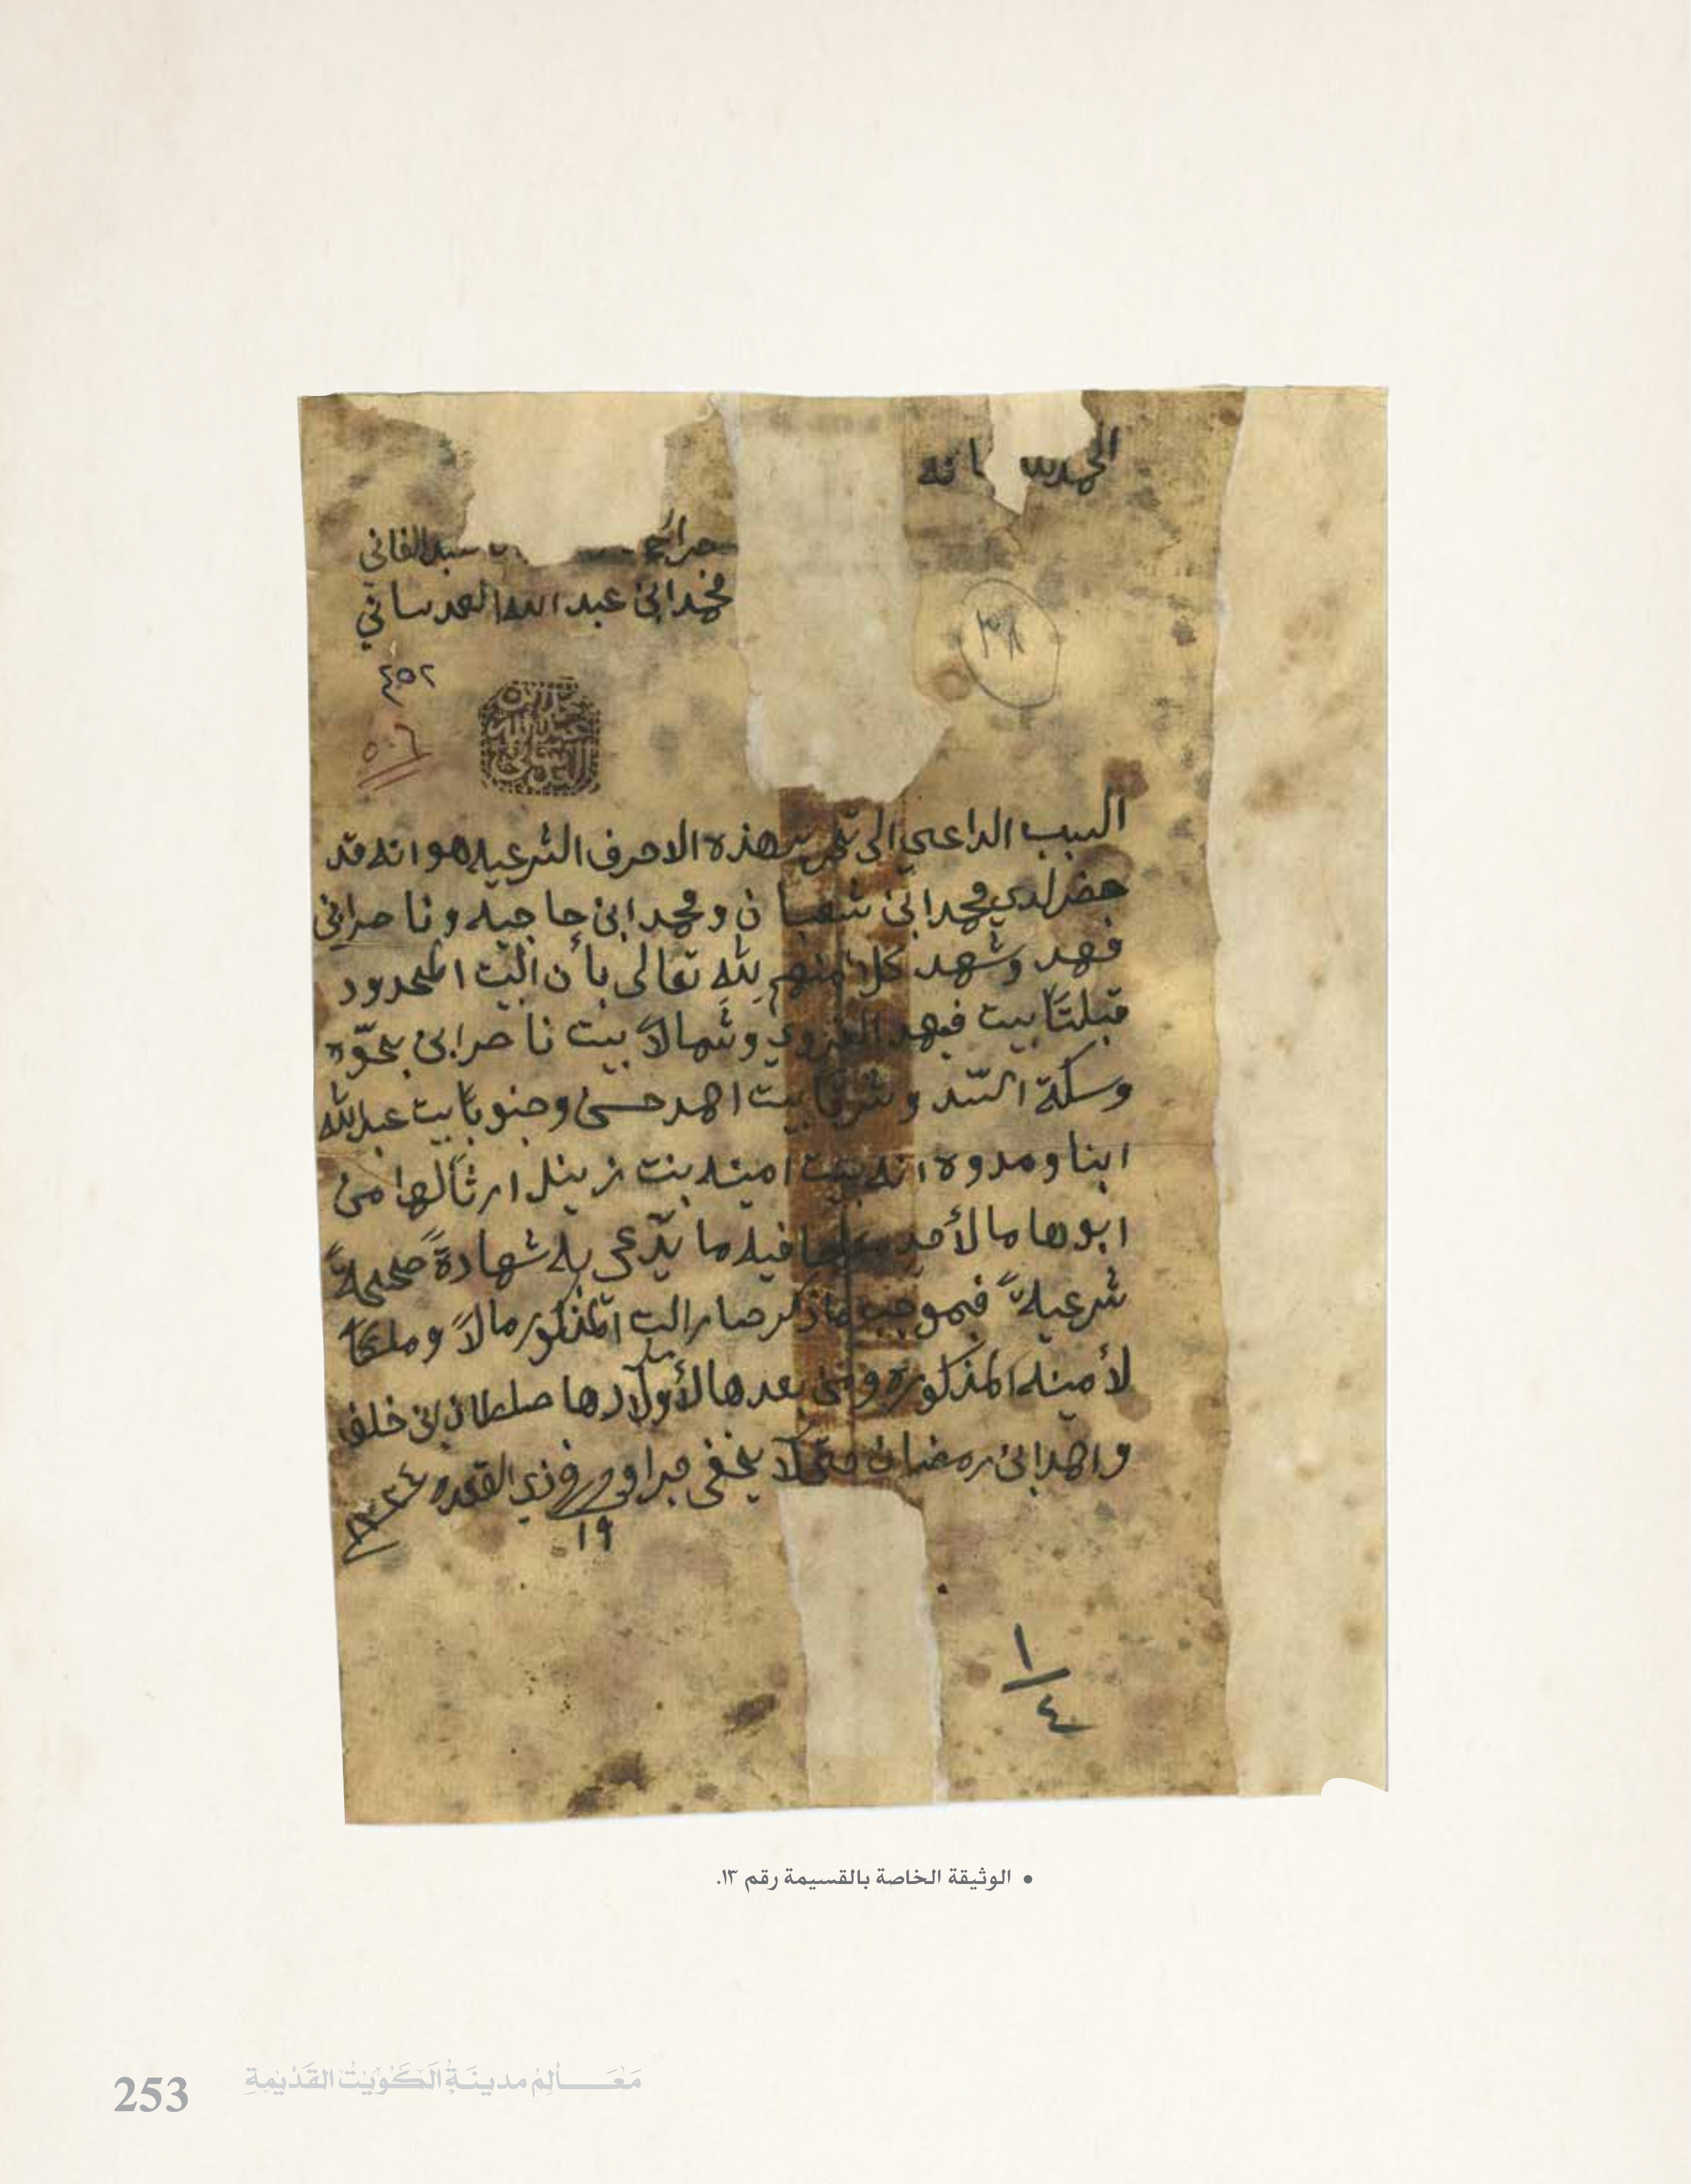 الحمد لله
سيد الفاني
محمد ابن عبد الله العدساني
٣٨
٤٥٢
٥٠٦
محمد بن عبد الله العدساني
السبب الداعي الى تحرير هذه الاحرف الشرعيه هو انه قد
حضر لدي محمد ابن شعبان و محمد ابن حاجيه و ناصر ابن
فهد وشهد كلا منهم لله تعالى بأن البيت المحدود
قبلتاً بيت فهد الغزوي وشمالاً بيت ناصر ابن بحوّه
وسكة السّد وشرقاً بيت احمد حسن وجنوباً بيت عبدالله
ابنا ومدوه انه بيت امينه بنت زينل ارثاً لها من
ابوها ما لأحد فيه ما يدّعي به شهادةً صحيحةً
شرعيةً فبموجب ما ذكر صار البيت المذكور مالاً وملكاً
لأمينه المذكوره ومن بعدها لأولادها صلطان ابن خلف
واحمد ابن رمضان حتى لا يخفى جرا وحرر في ذي القعده ١٣٣٤
١٩
١
٤
• الوثيقة الخاصة بالقسيمة رقم ١٣.
253 مَعَالِمْ مدينَةُ الكُوَيْتْ القَدْيمةِ